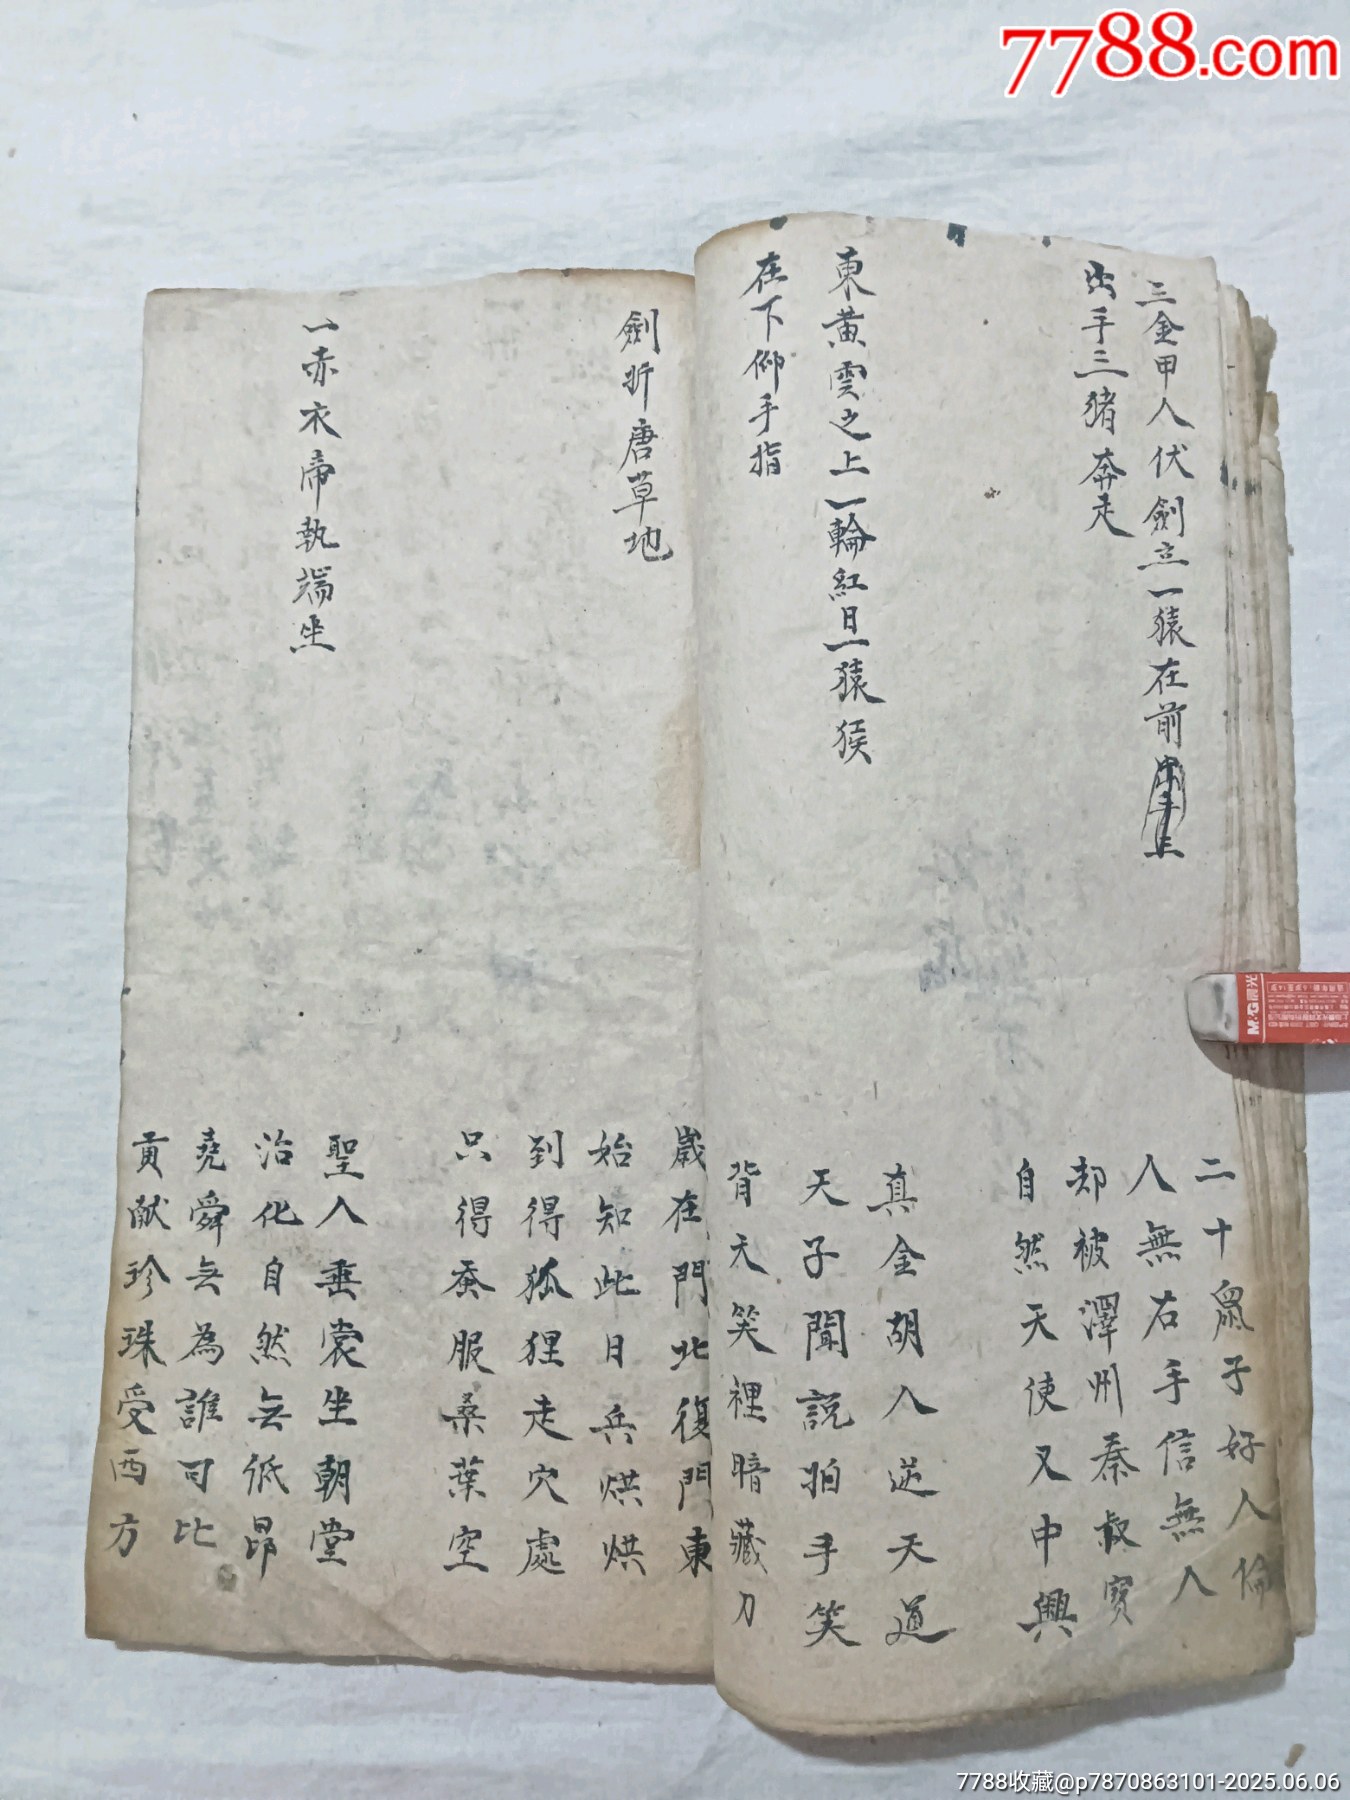 7788.com
三金甲人伏劍立一猿在前
出手三猪奔走
東黃雲之上一輪紅日一猿猴
在下仰手指
二十鼠子好人倫
人無右手信無人
却被澤州秦叔寶
自然天使又中興
真金胡人逆天道
天子聞説拍手笑
背天笑裡暗藏刀
劍折唐草地
一赤衣帝執端坐
歲在門北復門東
始知此日兵烘烘
到得狐狸走穴處
只得蚕服桑葉空
聖人垂裳坐朝堂
治化自然無低昂
堯舜無為誰可比
貢献珍珠受西方
M&G晨光
7788收藏@p7870863101-2025.06.06